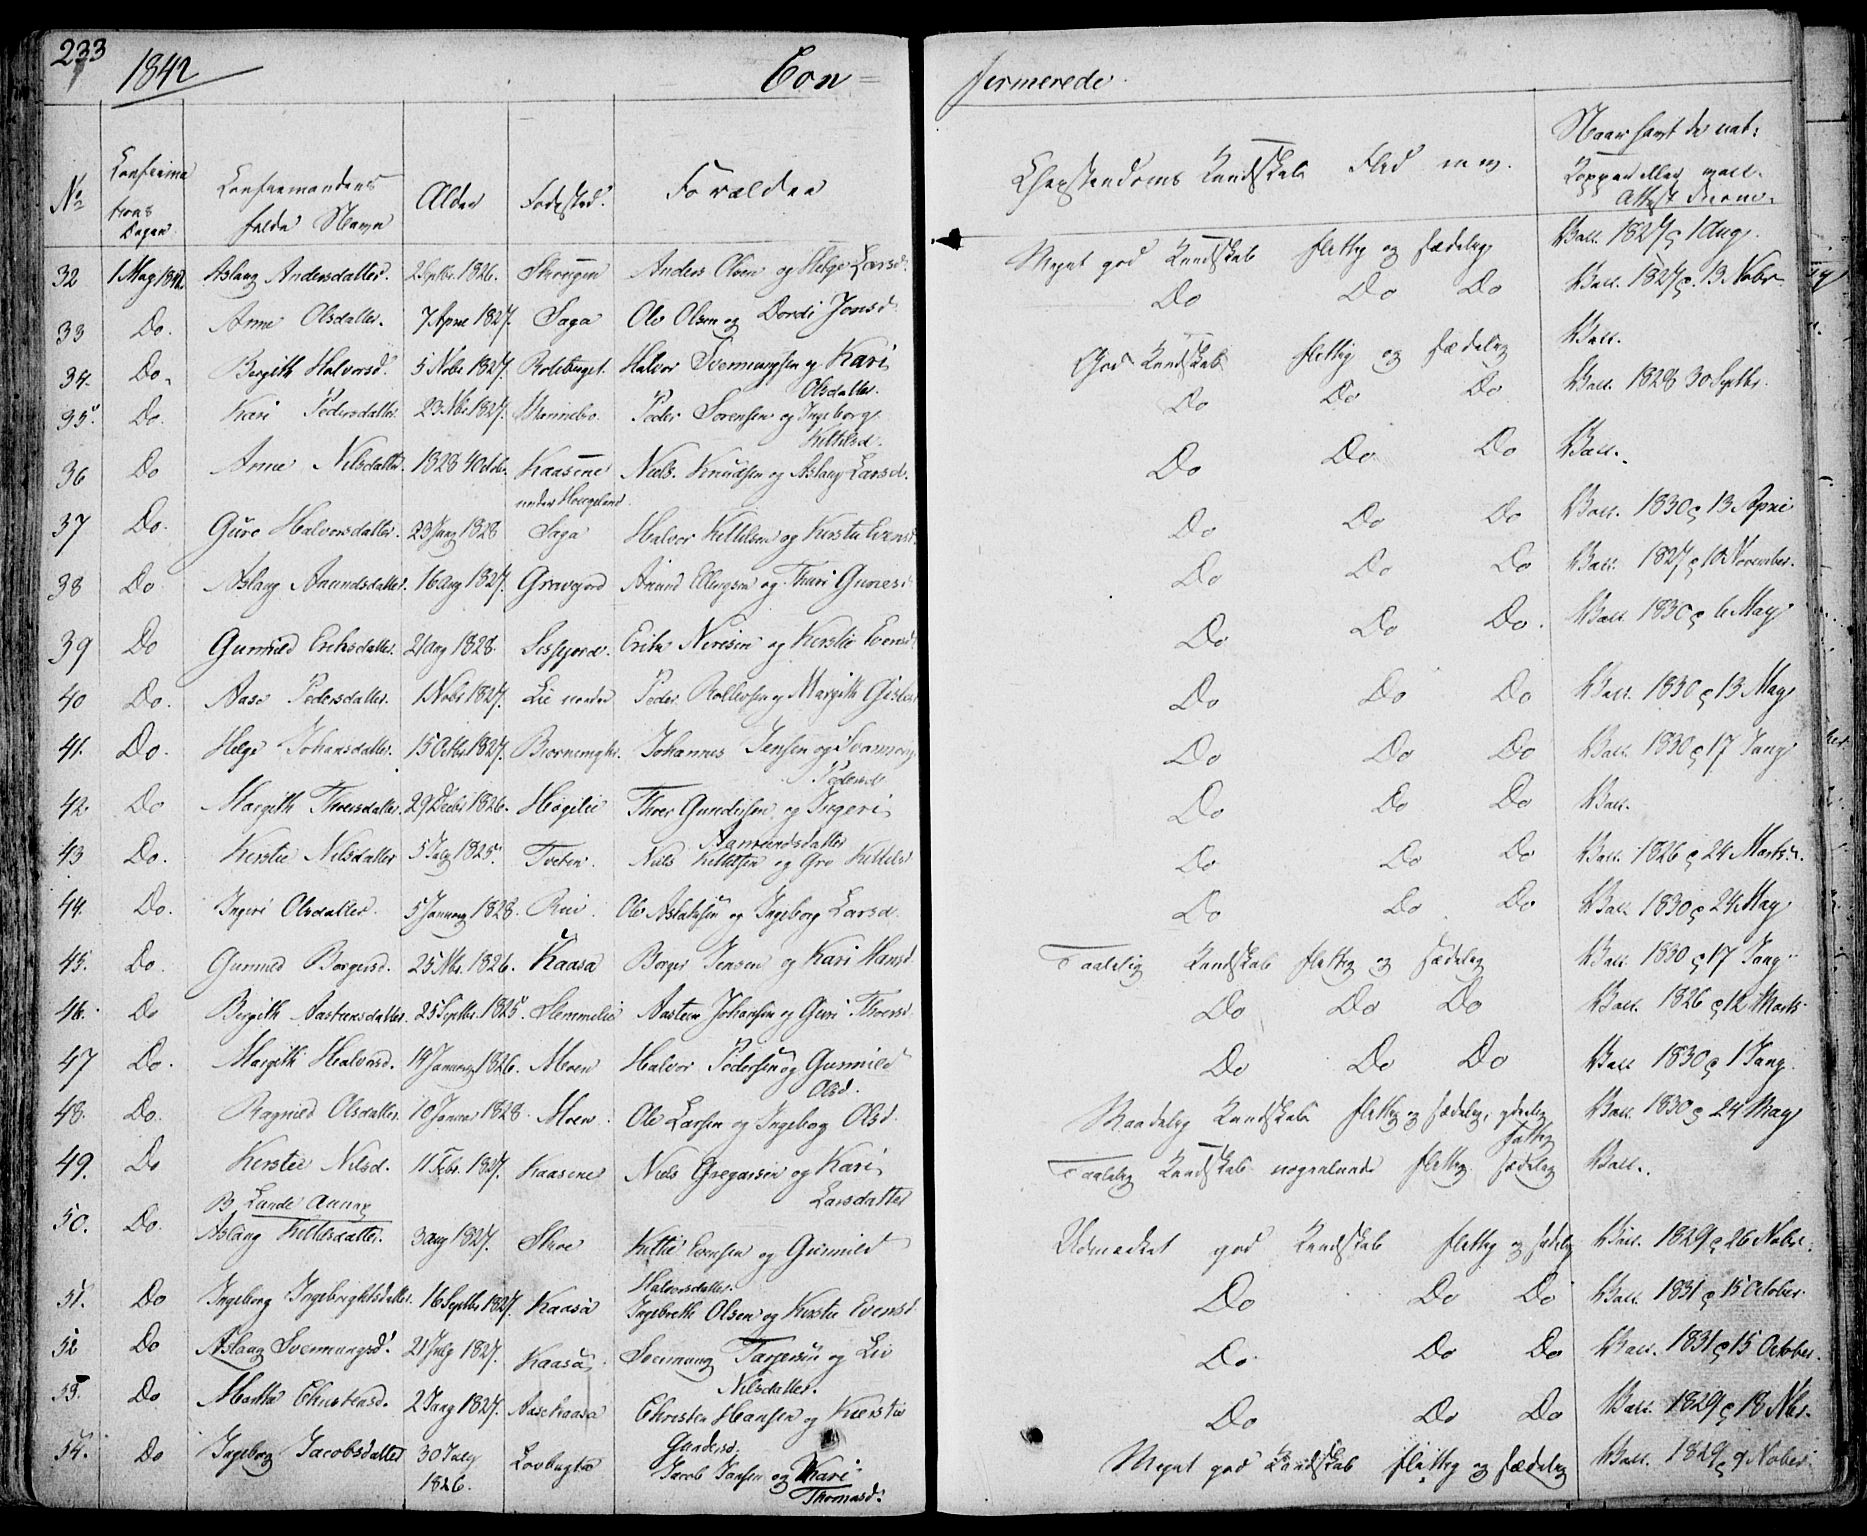 233
1842
Con=
firmerede.
No
Confirma
tions
Dagen
Confirmandens
fulde Navn
Alder
Fødested.
Forældre
Christendoms Kundskab Flid m m.
Naar havt de nat:
Kopper eller vacc.
Attest derom.
32 1 May 1842. Aslaug Andersdatter. 2 Septbr 1826. Anders Olsen og Helge Larsd. Meget god Kundskab flittig og sædelig Vacc. 1827 1 Aug.
33 Do. Anne Olsdatter. 7 April 1827. Saga Ole Olsen og Dordi Jonsd. Do Do Do Vacc. 1827 13 Nobr
34. Do. Bergith Halvorsd. 5 Nobr 1827. Halvor Svennungsen og Kari
Olsdatter. God Kundskab flittig og sædelig Vacc.
35. Do. Kari Pedersdatter 23 Nbr 1827. Peder Sørensen og Ingeborg
Kittilsd. Do Do Do Vacc. 1828 30 Septbr.
36 Do Anne Nilsdatter. 1828 4 Octobr. Kaasene Niels Knudsen og Aslaug Larsd.
under Haugeland Do Do Do Vacc.
37 Do. Guro Halvorsdatter. 23 Jany 1828 Saga Halvor Kittelsen og Kirstie Evensd. Do Do Do Vacc. 1830 13 April
38 Do Aslaug Amundsdatter. 16 aug 1827. Gravejord Amund Ellingsen og Thuri Gunersd Do Do Do Vacc. 1827 10 November.
39 Do Gunnild Eriksdatter. 21 aug 1828. Erik Nirisen og Kerstie Evensd Do Do Do. Vacc. 1830 6 May
40 Do. Aase Pedersdatter. 1 Nobr 1827. Lie nordre Peder Rollefsen og Margith Do Do Do Vacc. 1830 13 May
41. Do. Helge Johansdatter. 15 Octbr 1827. Johannes Jensen og Svannoug
Pedersd Do Do Do Vacc. 1830 17 Jany
42. Do Margith Thorsdatter. 29 Decbr 1826. Høgelie Thor Gundersen og Ingeri
Aamundsdatter Do Do Do Vacc.
43 Do. Kerstie Nilsdatter 5 July 1825. Tveten. Niels Kittelsen og Gro Kittelsd Do Do Do Vacc. 1826 24 Marts.
44. Do. Ingeri Olsdatter. 5 January 1828. Rui Ole Aslaksen og Ingeborg Larsd. Do Do Do Vacc. 1830 24 May
45. Do. Gunnild Borgersd. 25 Nbr. 1826. Kaasa Borger Jensen og Kari Hansd. Taalelig Kundskab flittig og sædelig Vacc. 1830 17 Jany
46. Do Bergith Aasteensdatter. 25 Septbr. 1825. Slemmelie Aasteen Johansen og Guri Thorsd. Do Do Do Vacc. 1826 12 Marts
47 Do. Margith Halvorsd. 14 January 1826. Moen Halvor Pedersen og Gunnild
Olsd. Do Do Do Vacc 1830 1 Jany.
48. Do. Ragnild Olsdatter. 10 Januar 1828. Moen. Ole Larsen og Ingeborg Olsd. Maadelig Kundskab flittig og sædelig, yderlig
fattig Vacc. 1830 24 May
49. Do Kerstie Nilsd. 11 Febr. 1827. Kaasene Niels Gregarsen og Kari
Larsdatter Taalelig Kundskab nogenlunde flittig sædelig Vacc.
50. Do. Aslaug Kittelsdatter. 3 aug 1827. Skoe Kittil Evensen og Gunnild
Halvorsdatter. Udmærket god Kundskab flittig og sædelig Vacc. 1829 26 Nobr.
51. Do Ingeborg Ingebrightsdatter. 16 Septbr 1827. Kaasa Ingebreth Olsen og Kirstie Evensd Do Do Do Vacc. 1831 15 October.
52 Do Aslaug Svennungsd. 21 July 1827. Kaasa Svennung Tarjersen og Liv
Nilsdatter. Do Do Do Vacc. 1831 15 October.
53. Do Marthe Christensd. 2 Jany 1827. Aasekaasa Christen Hansen og Kierstie
Gundersd. Do Do Do Vacc. 1829 18 Nbr.
54. Do Ingeborg Jacobsdatter 30 July
1826. Jacob Jansen og Kari
Thomasd. Meget god Kundskab flittig og sædelig Vacc. 1829 9 Nober